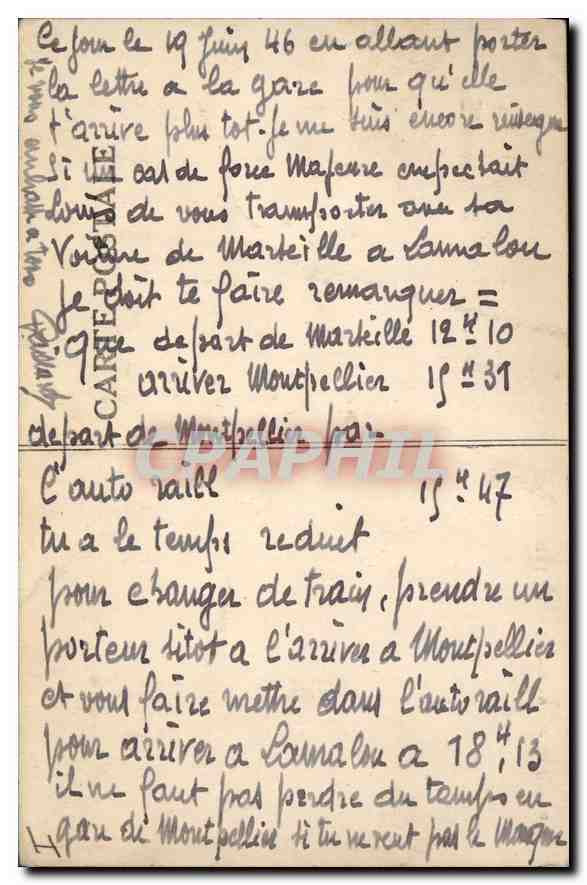 Ce Jour le 19 Juin 46 en allant porter
la lettre a la gare pour qu'elle
t'arrive plus tot. Je me suis encore
Si un cas de force Majeure empechait
Louis de vous transporter avec sa
Voiture de Marseille a Lamalou
Je doit te faire remarquer =
que depart de Marseille 12 H 10
arriver Montpellier 15 H 31
depart de Montpellier par
l'auto raill 15 H 47
tu a le temps reduit
pour changer de train, prendre un
porteur sitot a l'arriver a Montpellier
et vous faire mettre dans l'auto raill
pour arriver a Lamalou a 18 H, 13
il ne faut pas perdre du temps en
gare de Montpellier si tu ne veut pas le Manquer
Je vous embrasse a tous
CARTE POSTALE
CPAPHIL